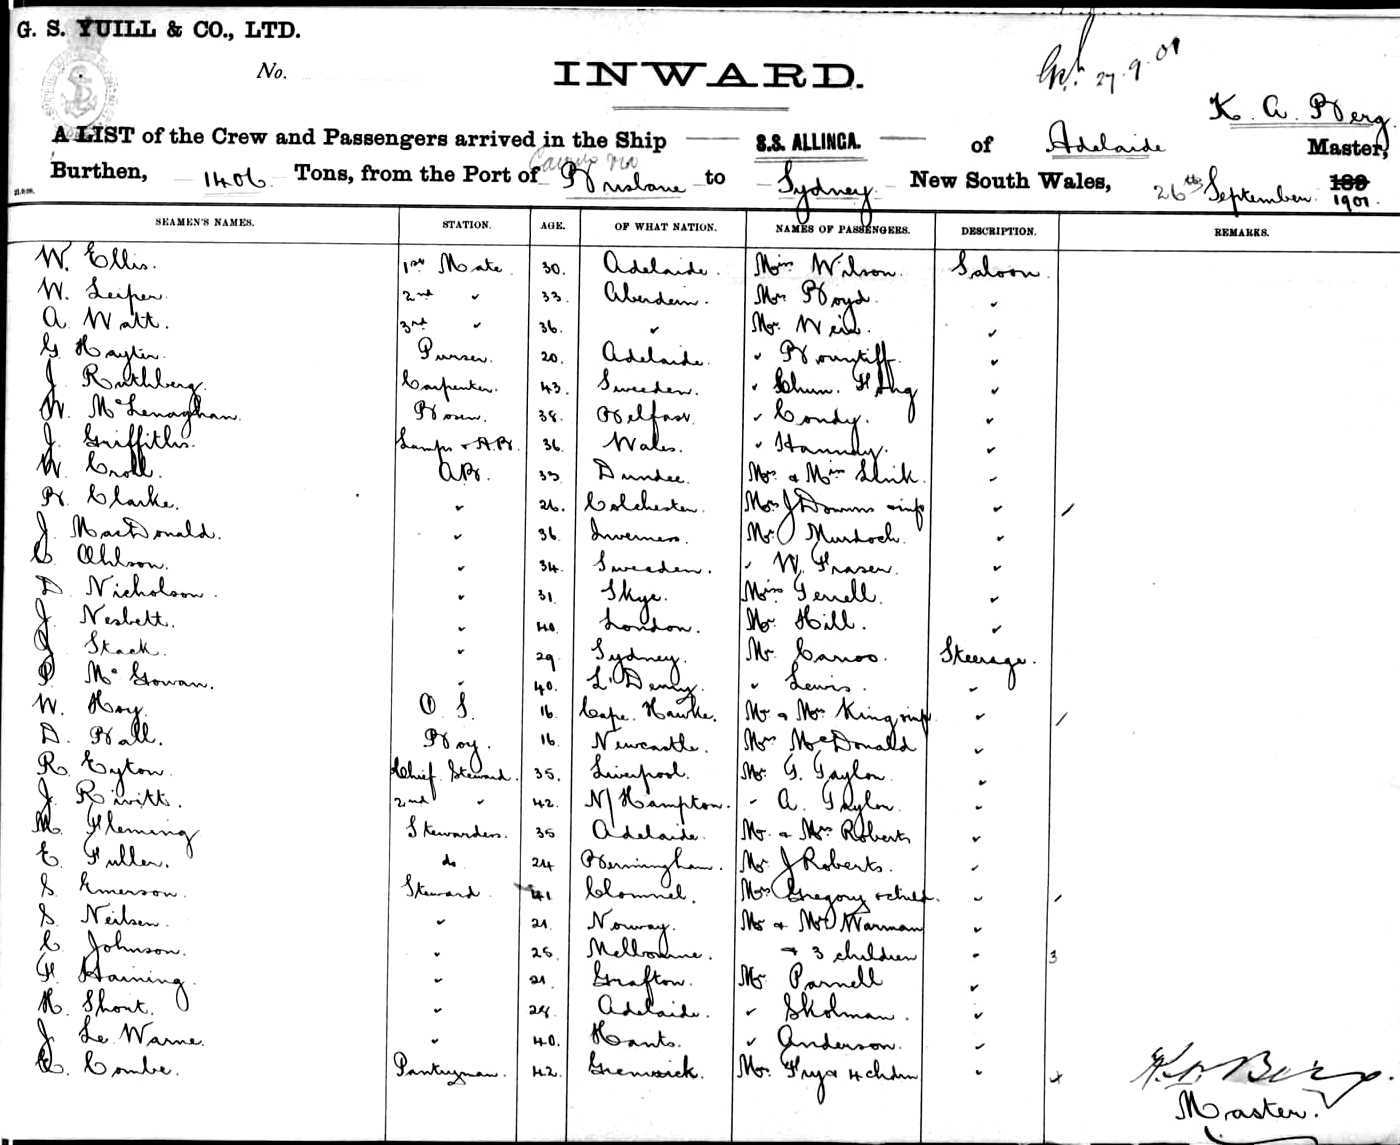 G. S. YUILL & CO., LTD.
No.
INWARD.
27.9.01
K. A. Berg
A LIST of the Crew and Passengers arrived in the Ship S.S. ALLINGA. of Adelaide Master,
Burthen, 1406 Tons, from the Port of Cairns via Brisbane to Sydney New South Wales, 26th September 189 1901.
SEAMEN'S NAMES. STATION. AGE. OF WHAT NATION. NAMES OF PASSENGERS. DESCRIPTION. REMARKS.
W. Ellis. 1st Mate 30. Adelaide. Miss Wilson. Saloon
W. Leiper 2nd " 33. Aberdein. Mr Boyd. "
A. Watt. 3rd " 36. " Mr. Weir. "
G. Hayter. Purser. 20. Adelaide. " Bountiff. "
J. Ruthberg. Carpenter. 43. Sweeden. " Chum. "
W. McLenaghan. Bosun. 38. Belfast " Condy. "
J. Griffiths. Lamps & A.B. 36. Wales. " Hannay. "
W. Croll. A.B. 33 Dundee. Mr. & Mrs Link. "
R. Clarke. " 26. Colchester. Mrs J Downs & inf " /
J. MacDonald. " 36. Inverness. Mr. Murdoch. "
C. Ohlson. " 34. Sweeden. " W. Fraser. "
D. Nicholson. " 31. Skye. Miss Terrell. "
J. Nesbett. " 40. London. Mr. Hill. "
J. Stack. " 29 Sydney. Mr. Steerage.
P. McGowan. " 40. L'Derry. " Lewis. "
W. Hoy. O. S. 16. Cape. Hawke. Mr & Mrs King & inf " /
D. Ball. Boy. 16. Newcastle. Mrs McDonald "
R. Eyton. Chief Steward. 35. Liverpool. Mr. G. Taylor. "
J. Rivitt. 2nd " 42. N/Hampton. " A. Taylor. "
M. Fleming Stewardess. 35 Adelaide. Mr. & Mrs Roberts "
E. Fuller. do 24 Berningham. Mr J Roberts. "
S. Emerson. Steward. 41 Clonmel. Mrs Gregory & child. " /
S. Neilsen. " 21. Norway. Mr & Mrs Warman "
C. Johnson. " 25. Melbourne. & 3 children " 3
F. Haining. " 21. Grafton. Mr. Parnell "
H. Shout. " 28. Adelaide. " Skolman. "
J. Le Warne. " 40. Hants. " Anderson. "
C. Combe. Pantryman. 42. Greenwick. Mrs. Fry & 4 chdrn " 4
K. A. Berg.
Master.